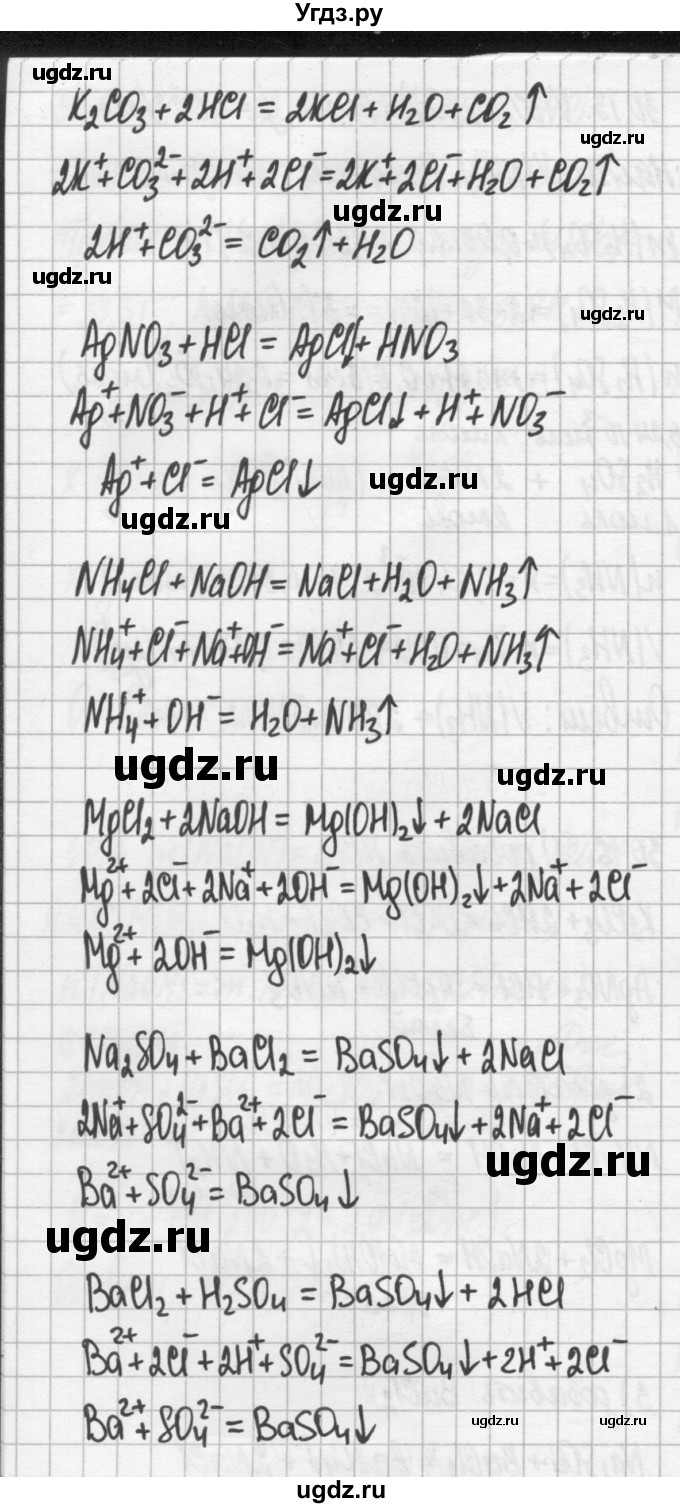 Угдз.ру
ugdz.ru
K₂CO₃ + 2HCl = 2KCl + H₂O + CO₂↑
ugdz.ru
2K⁺ + CO₃²⁻ + 2H⁺ + 2Cl⁻ = 2K⁺ + 2Cl⁻ + H₂O + CO₂↑
ugdz.ru
2H⁺ + CO₃²⁻ = CO₂↑ + H₂O
ugdz.ru
ugdz.ru
AgNO₃ + HCl = AgCl↓ + HNO₃
Ag⁺ + NO₃⁻ + H⁺ + Cl⁻ = AgCl↓ + H⁺ + NO₃⁻
Ag⁺ + Cl⁻ = AgCl↓
ugdz.ru
ugdz.ru
NH₄Cl + NaOH = NaCl + H₂O + NH₃↑
NH₄⁺ + Cl⁻ + Na⁺ + OH⁻ = Na⁺ + Cl⁻ + H₂O + NH₃↑
NH₄⁺ + OH⁻ = H₂O + NH₃↑
ugdz.ru
ugdz.ru
MgCl₂ + 2NaOH = Mg(OH)₂↓ + 2NaCl
Mg²⁺ + 2Cl⁻ + 2Na⁺ + 2OH⁻ = Mg(OH)₂↓ + 2Na⁺ + 2Cl⁻
Mg²⁺ + 2OH⁻ = Mg(OH)₂↓
Na₂SO₄ + BaCl₂ = BaSO₄↓ + 2NaCl
2Na⁺ + SO₄²⁻ + Ba²⁺ + 2Cl⁻ = BaSO₄↓ + 2Na⁺ + 2Cl⁻
ugdz.ru
Ba²⁺ + SO₄²⁻ = BaSO₄↓
ugdz.ru
BaCl₂ + H₂SO₄ = BaSO₄↓ + 2HCl
Ba²⁺ + 2Cl⁻ + 2H⁺ + SO₄²⁻ = BaSO₄↓ + 2H⁺ + 2Cl⁻
Ba²⁺ + SO₄²⁻ = BaSO₄↓
ugdz.ru
ugdz.ru
ugdz.ru